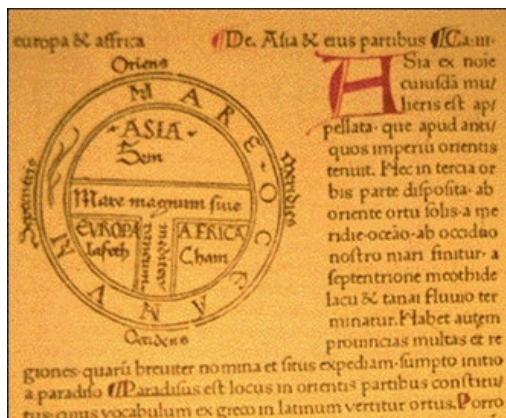 europa & affrica
¶De. Asia & eius partibus ¶Ca·III·
Oriens
MARE OCEANUM
Septentrio
Meridies
Occidens
·ASIA·
Sem
Mare magnum siue
mediterraneum
EVROPA
Iafeth
AFRICA
Cham
ASia ex noie
cuiusdā mu/
lieris est ap/
pellata· que apud anti/
quos imperiū orientis
tenuit. Hec in tercia or
bis parte disposita· ab
oriente ortu solis· a me
ridie·oceāo·ab occiduo
nostro mari finitur· a
septentrione meothide
lacu & tanai fluuio ter
minatur. Habet autem
prouincias multas et re
giones·quarū breuiter nomina et situs expediam·sumpto initio
a paradiso ¶Paradisus est locus in orientis partibus constitu/
tus·cuius vocabulum ex greco in latinum vertitur ortus. Porro